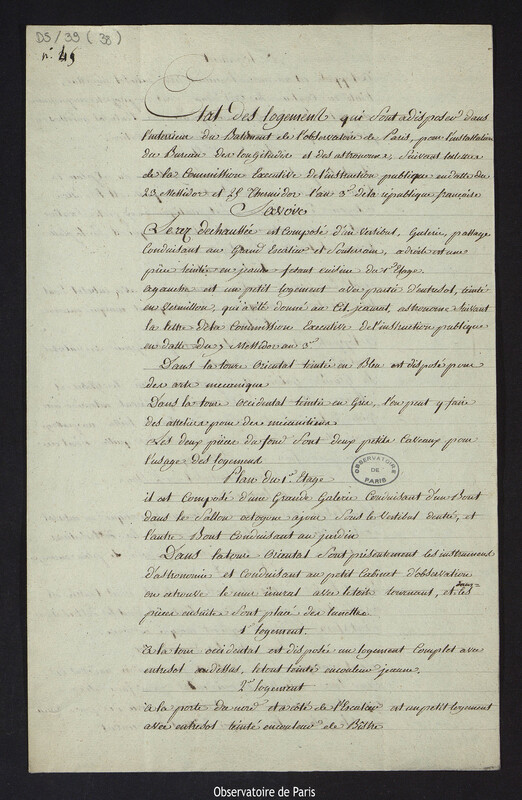 DS/39 (38)
n.° 49
Etat des logement qui sont a disposer dans
l'interieur du Batiment de l'observatoire de Paris, pour l'installation
du Bureau des longitudes et des astronomes, suivant la lettre
de la Commission Executive de l'instruction publique en datte du
23 Messidor et 25 Thermidor l'an 3.e de la republique française
Savoire
Le rez de chaussée est composé d'un vestibul, Galerie, passage
conduisant au Grand Escalier et souterain, a droite est une
pièce teintée en jeaune fesant cuisine du 1.er Etage.
a gauche est un petit logement avec partie d'entresol, teintée
en vermillon, qui a été donné au Cit. jeaurat, astronome suivant
la lettre de la Commission Executive de l'instruction publique
en datte du 7 Messidor an 3.e
Dans la toure oriental teintée en Bleu est disposé pour
des arts mecanique
Dans la toure occidental teintée en Gris, l'on peut y faire
des atteliers pour des mécaniciens
Les deux pièces du fond sont deux petits Caveaux pour
l'usage des logemens
OBSERVATOIRE DE PARIS
Plan du 1.er Etage
il est composé d'une Grande Galerie conduisant d'un Bout
dans le sallon octogone ajour sous le vestibul dentré, et
l'autre Bout conduisant au jardin
Dans la toure oriental sont présentement les instrumens
d'astronomie et conduisant au petit Cabinet d'observation
on retrouve le mur mural avec le toit tournant, et les deux
pièces ensuite sont placé des lunettes
1.er logement.
à la tour occidental est disposée un logement complet avec
entresol au dessus, letout teinté encouleur jeaune.
2.e logement
à la porte du nord et a côté de l'Escalier est un petit logement
avec entresol teinté encouleur de Bistre
Observatoire de Paris